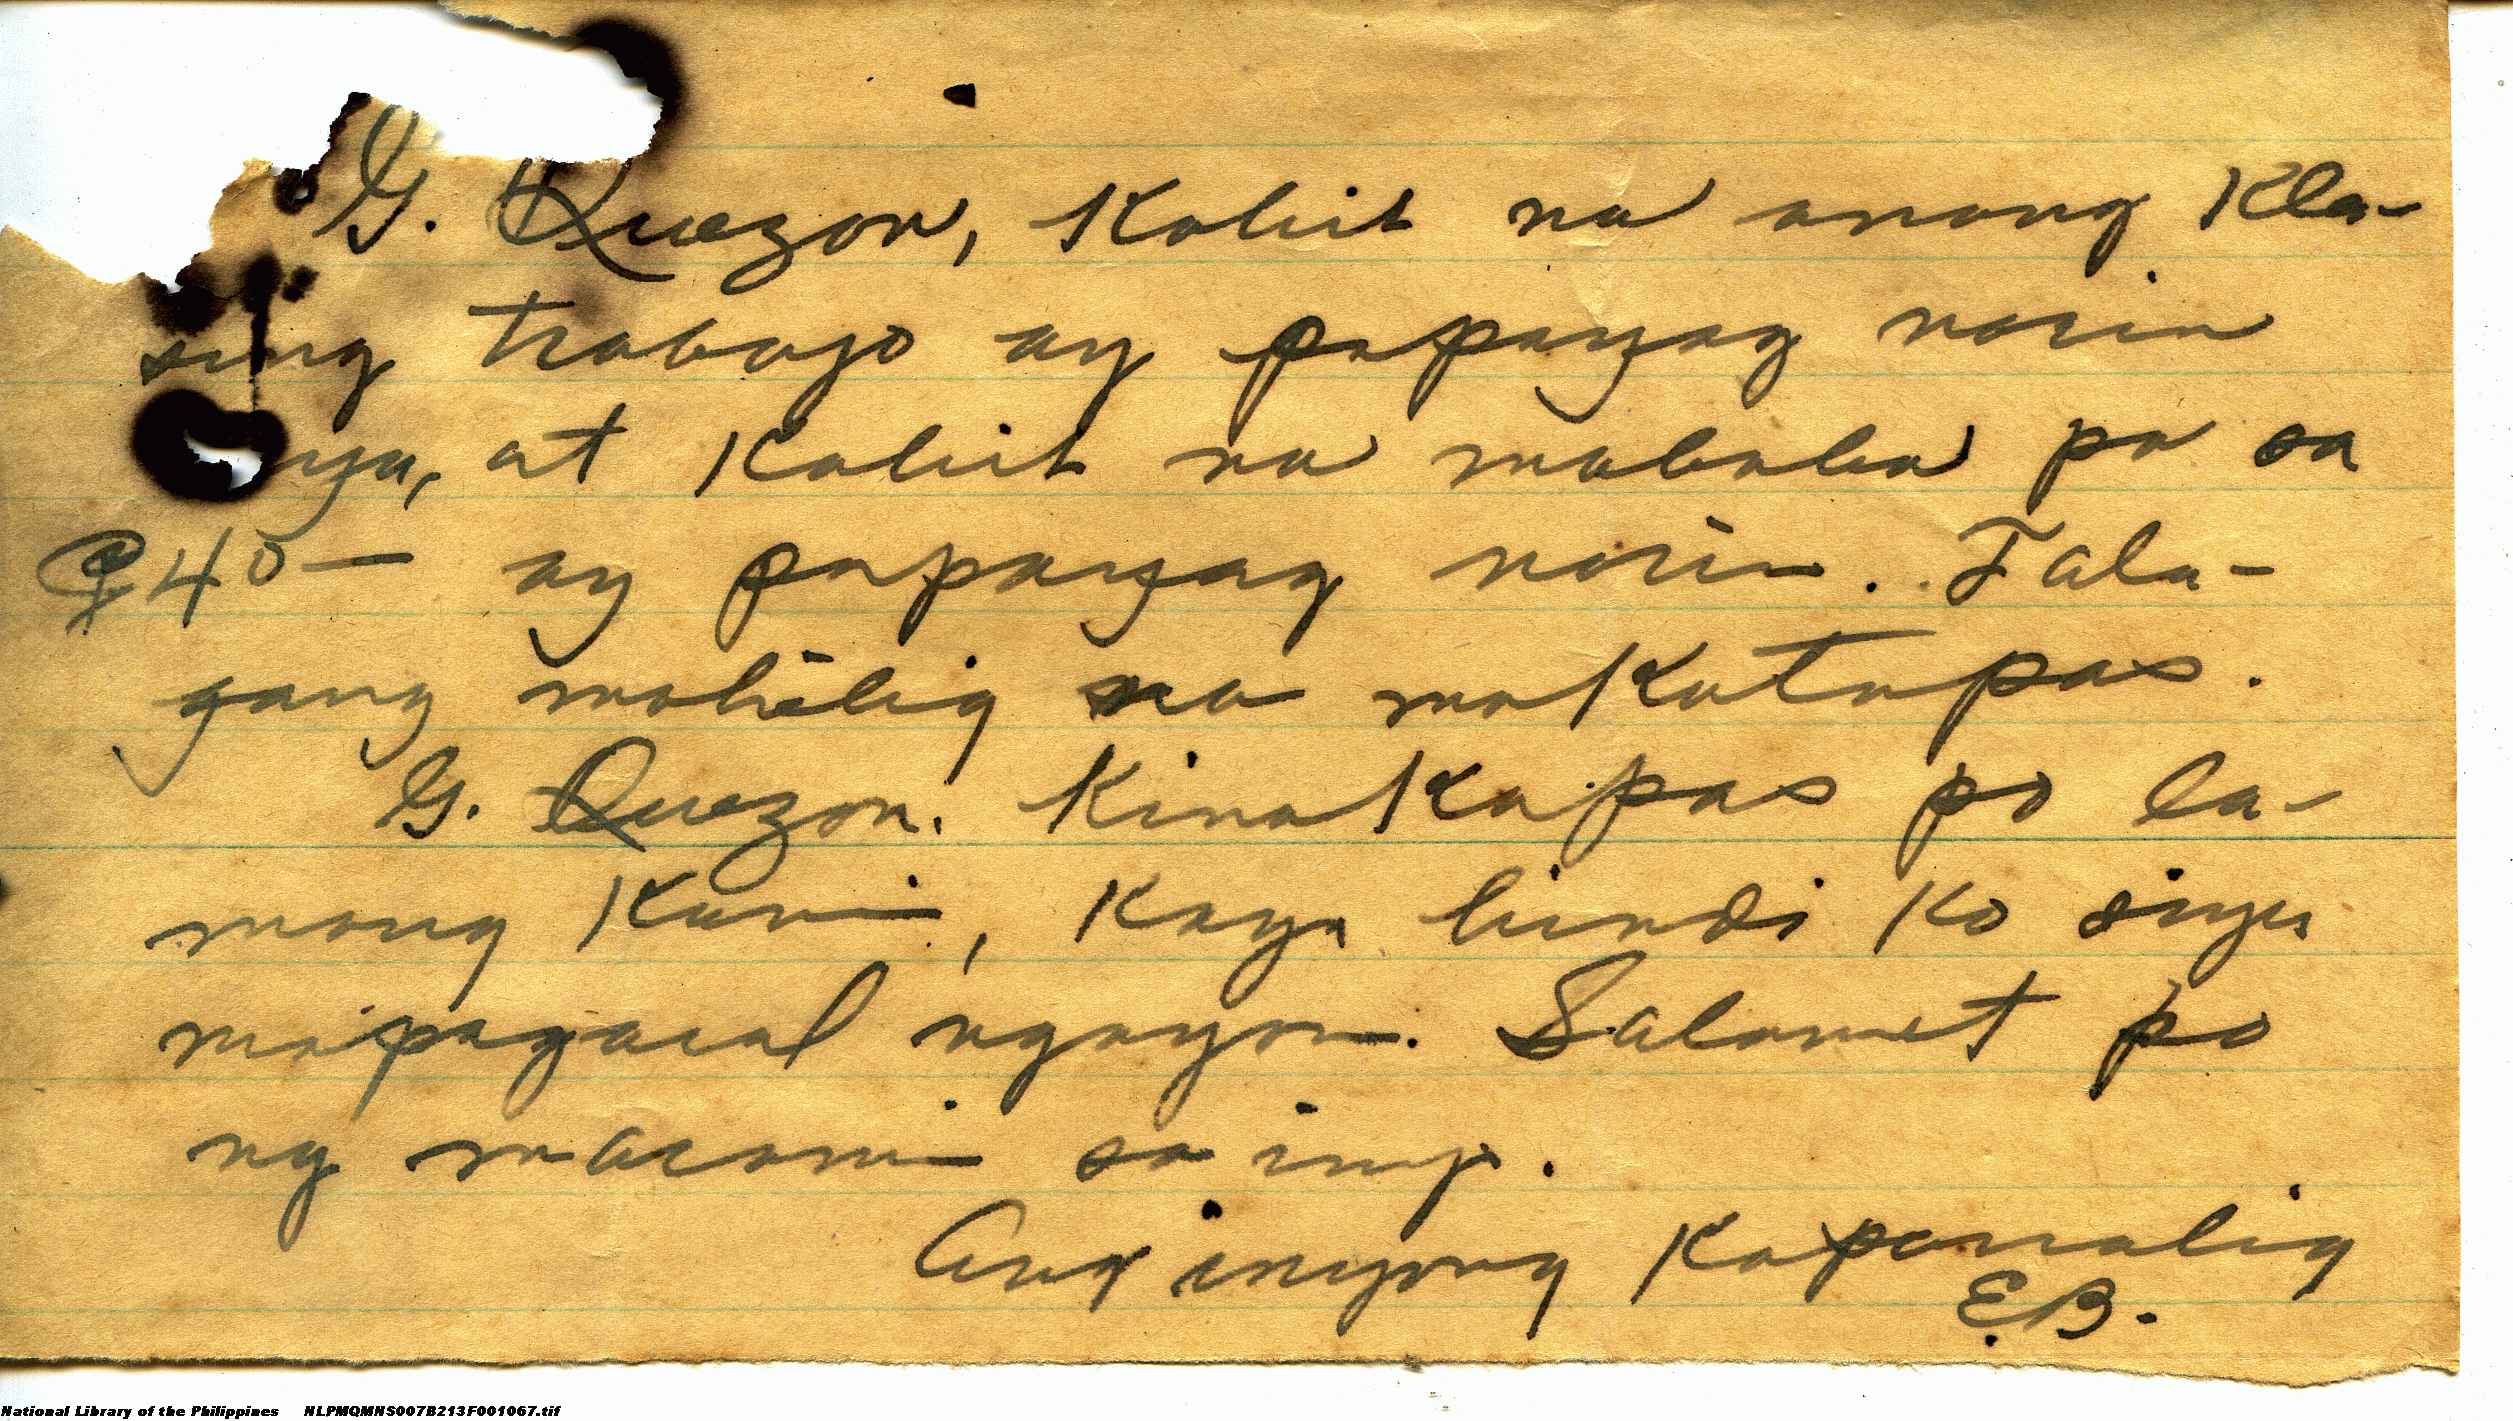 G. Quezon, Kahit na anong Kla-
sing trabajo ay papayag narin
ya, at Kahit na mababa pa sa
₱40— ay papayag narin. Tala-
gang mahilig na makatapas.
G. Quezon. Kinakapas po la-
mang Kami, Kaya hindi ko siya
mapagaral ngayon. Salamat po
ng marami sa inyo.
Ang inyong Kapanalig
E.B.
National Library of the Philippines NLPMQMNS007B213F001067.tif